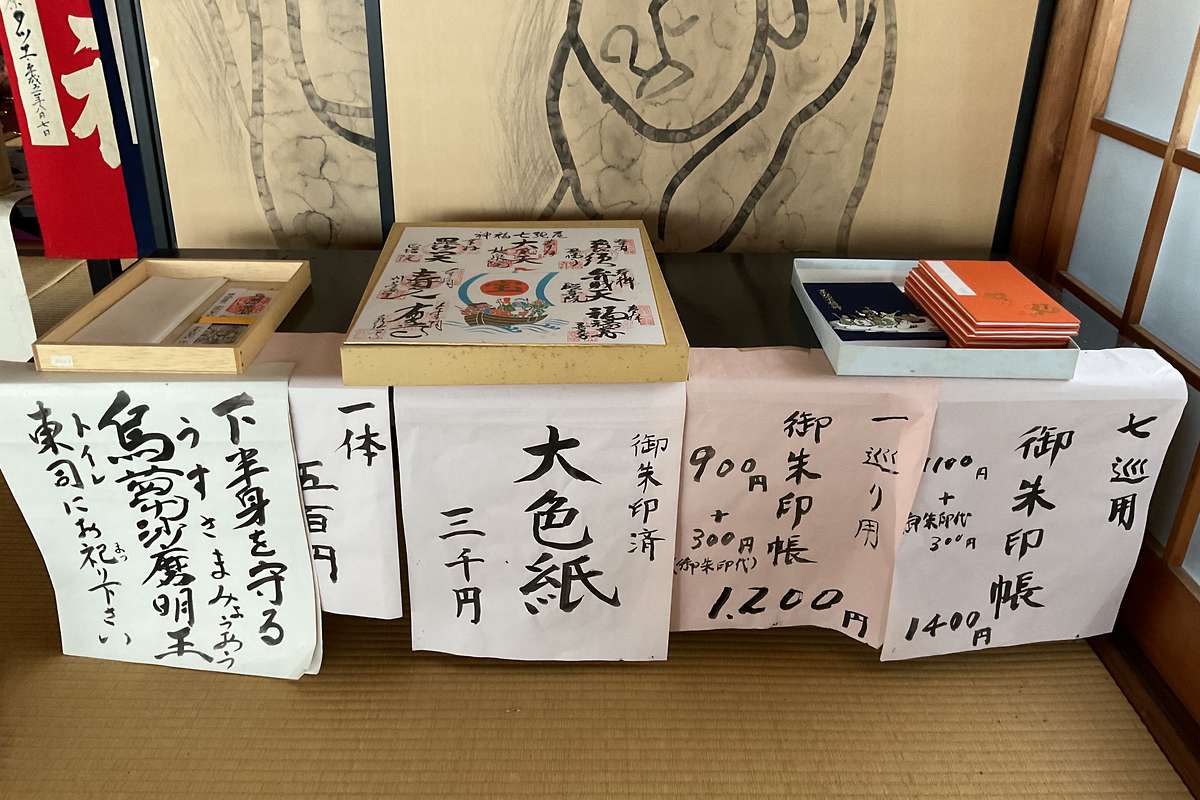 下半身を守る
うすさまみょうおう
烏蒭沙磨明王
トイレ
東司にお祀り下さい
まつ
一体
五百円
御朱印済
大色紙
三千円
一巡り用
御朱印帳
900円
+
300円
(御朱印代)
1.200円
七巡用
御朱印帳
1100円
+
御朱印代
300円
1400円